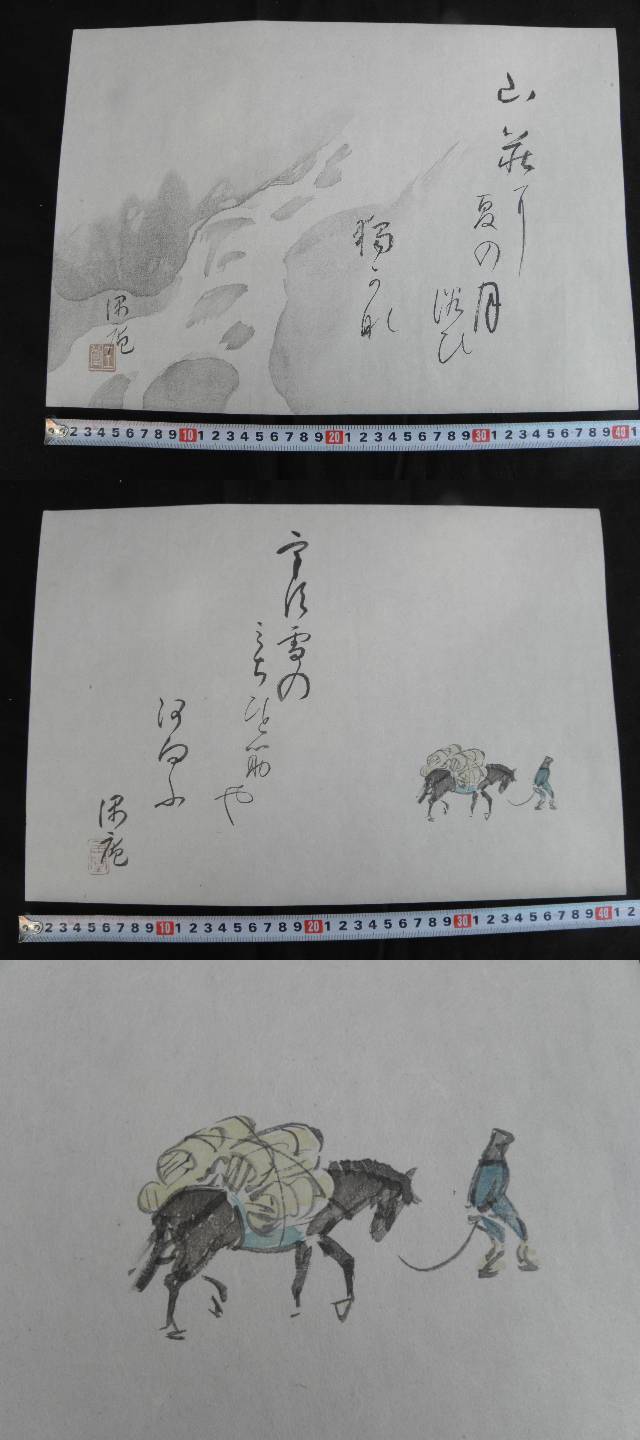 山荘に
夏の月
浴び
獨可那
2 3 4 5 6 7 8 9 10 1 2 3 4 5 6 7 8 9 20 1 2 3 4 5 6 7 8 9 30 1 2 3 4 5 6 7 8 9 40 1
宇須雪の
みちひと筋や
河向ふ
2 3 4 5 6 7 8 9 10 1 2 3 4 5 6 7 8 9 20 1 2 3 4 5 6 7 8 9 30 1 2 3 4 5 6 7 8 9 40 1 2